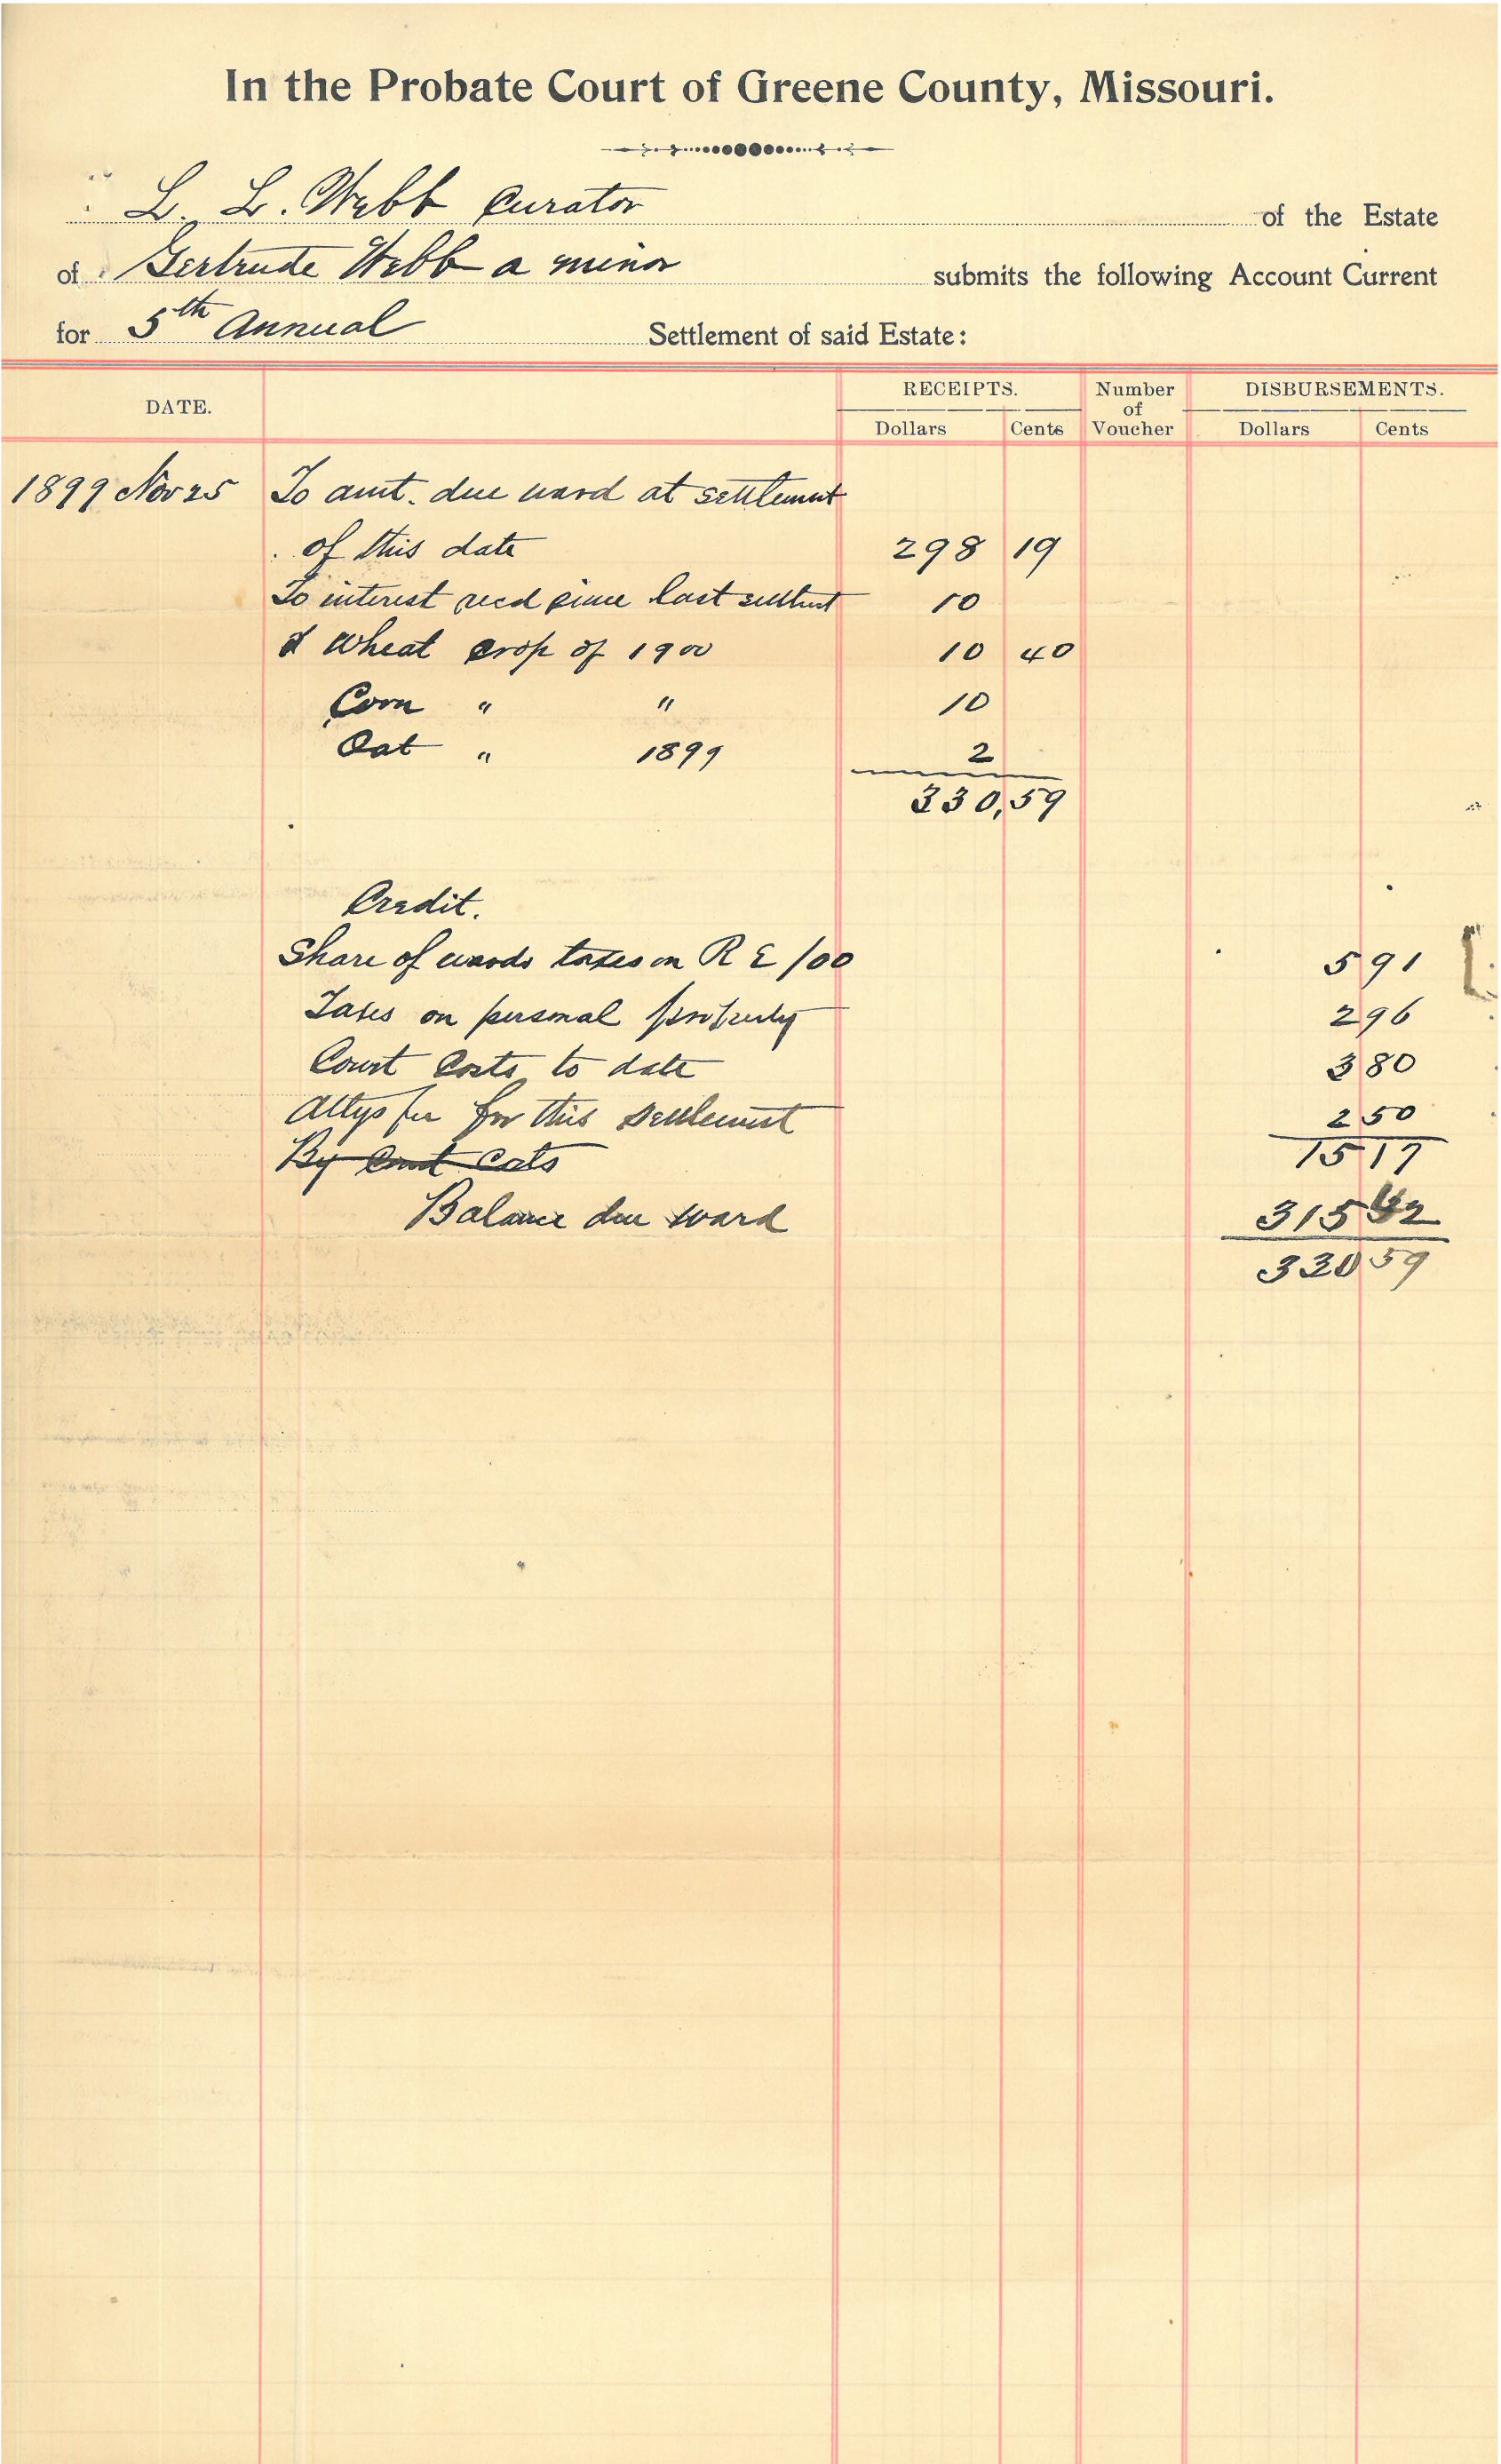 In the Probate Court of Greene County, Missouri.
L. L. Webb Curator of the Estate
of Gertrude Webb a minor submits the following Account Current
for 5th Annual Settlement of said Estate:
DATE. RECEIPTS. Number of Voucher DISBURSEMENTS.
Dollars Cents Dollars Cents
1899 Nov 25 To amt. due ward at settlement
of this date 298 19
To interest recd since last settlmt 10
" Wheat crop of 1900 10 40
Corn " " 10
Oat " 1899 2
330,59
Credit.
Share of wards taxes on R E /00 5 91
Taxes on personal property 2 96
Court Costs to date 3 80
Attys fee for this settlement 2 50
By Court Cots 15 17
Balance due ward 315 42
330 59